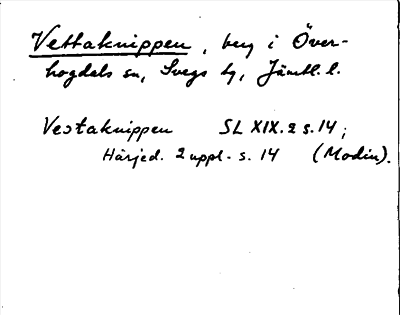 Vettaknippen, berg i Över-
hogdals sn, Svegs tg, Jämtl. l.
Vestaknippen SL XIX. 2 s. 14;
Härjed. 2 uppl. s. 14 (Modin).